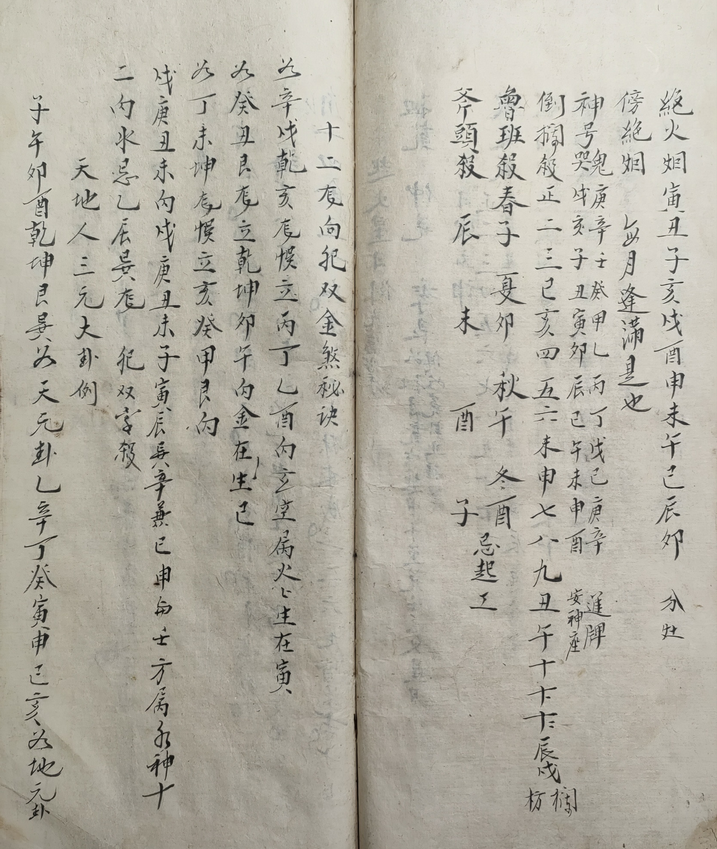 絶火烟寅丑子亥戌酉申未午巳辰卯 分灶
傍絶烟 每月逢滿是也
神号鬼哭 庚辛壬癸甲乙丙丁戊己庚辛 進牌
戌亥子丑寅卯辰巳午未申酉 安神座
倒捫殺正二三巳亥四五六未申七八九丑午十十一十二辰戌
魯班殺春子 夏卯 秋午 冬酉 忌起工
斧頭殺 辰 未 酉 子
十二龙向犯双金煞秘诀
如辛戌乾亥龙悮立丙丁乙酉向立坐属火七生在寅
如癸丑艮龙立乾坤卯午向金在生巳
如丁未坤龙悮立亥癸甲艮向
戌庚丑未向戌庚丑未子寅辰巽辛兼巳申向壬方属水神十
二向水忌乙辰巽龙 犯双字殺
天地人三元大卦例
子午卯酉乾坤艮巽为天元卦乙辛丁癸寅申巳亥为地元卦